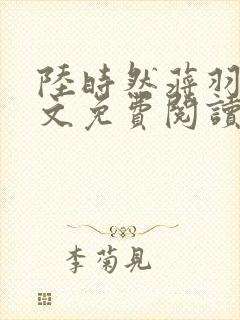 陸時然蒋羽
文免費閱讀
李菊見